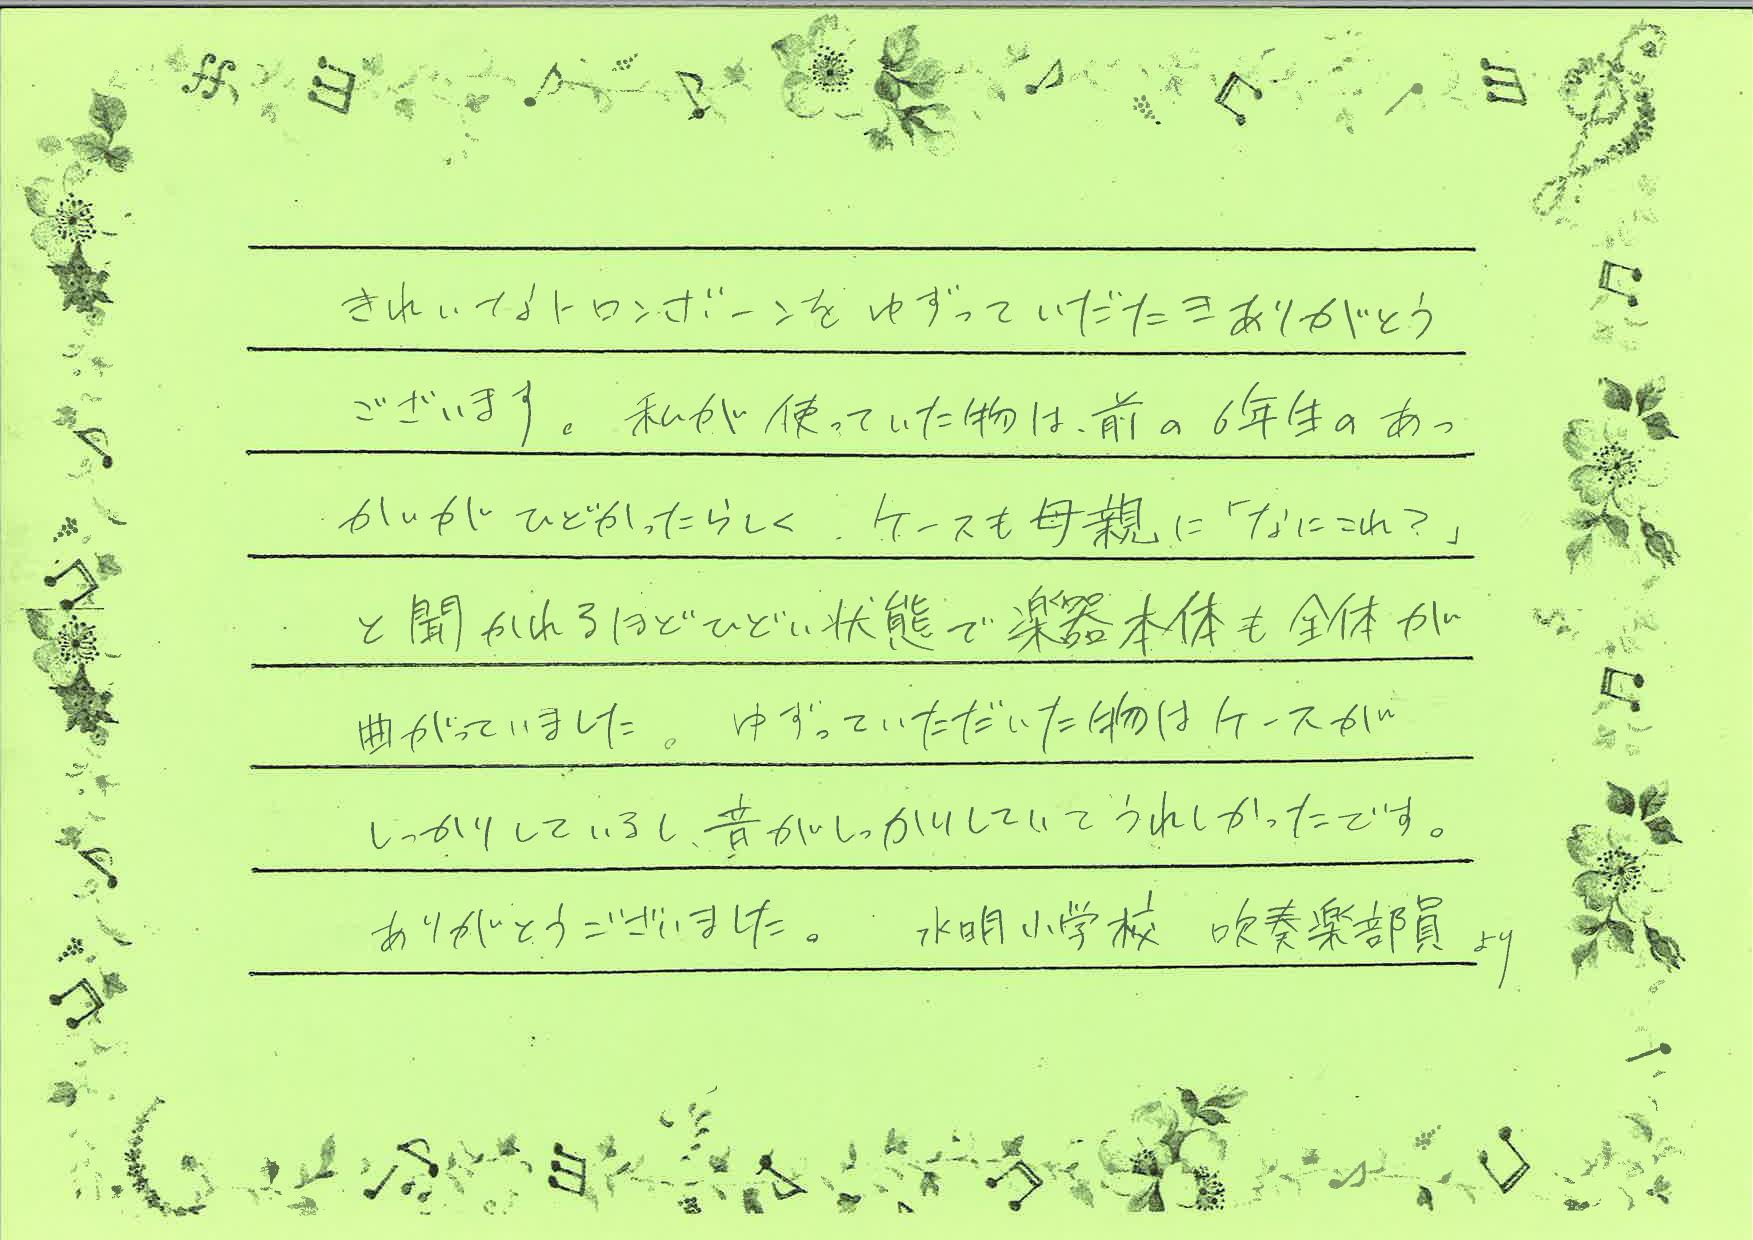 きれいなトロンボーンをゆずっていだたきありがとう
ございます。私が使っていた物は、前の6年生のあっ
かいがひどかったらしく、ケースも母親に「なにこれ?」
と聞かれるほどひどい状態で楽器本体も全体が
曲がっていました。ゆずっていただいた物はケースが
しっかりしているし、音がしっかりしていてうれしかったです。
ありがとうございました。 水明小学校 吹奏楽部員より